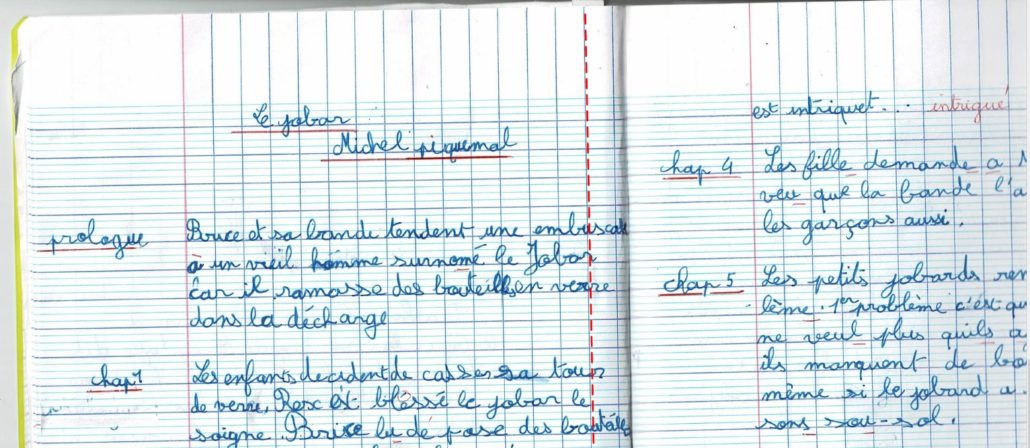 Le jobar
Michel piquemal
prologue Bruce et sa bande tendent une embuscad
à un vieil homme surnomé le Jobar
car il ramasse des bouteilles en verre
dans la décharge
chap 1 Les enfants decident de casser sa tour
de verre. Rex est blessé le jobar le
soigne. Bruce lu de pose des
est intriquet... intrigué
chap 4 Les fille demande a
veu que la bande l'a
les garçons aussi.
chap 5 Les petits jobards ren
lème. 1er problème c'est qu
ne veul plus quils a
ils manquent de bo
même si le jobard a
sons sou-sol.